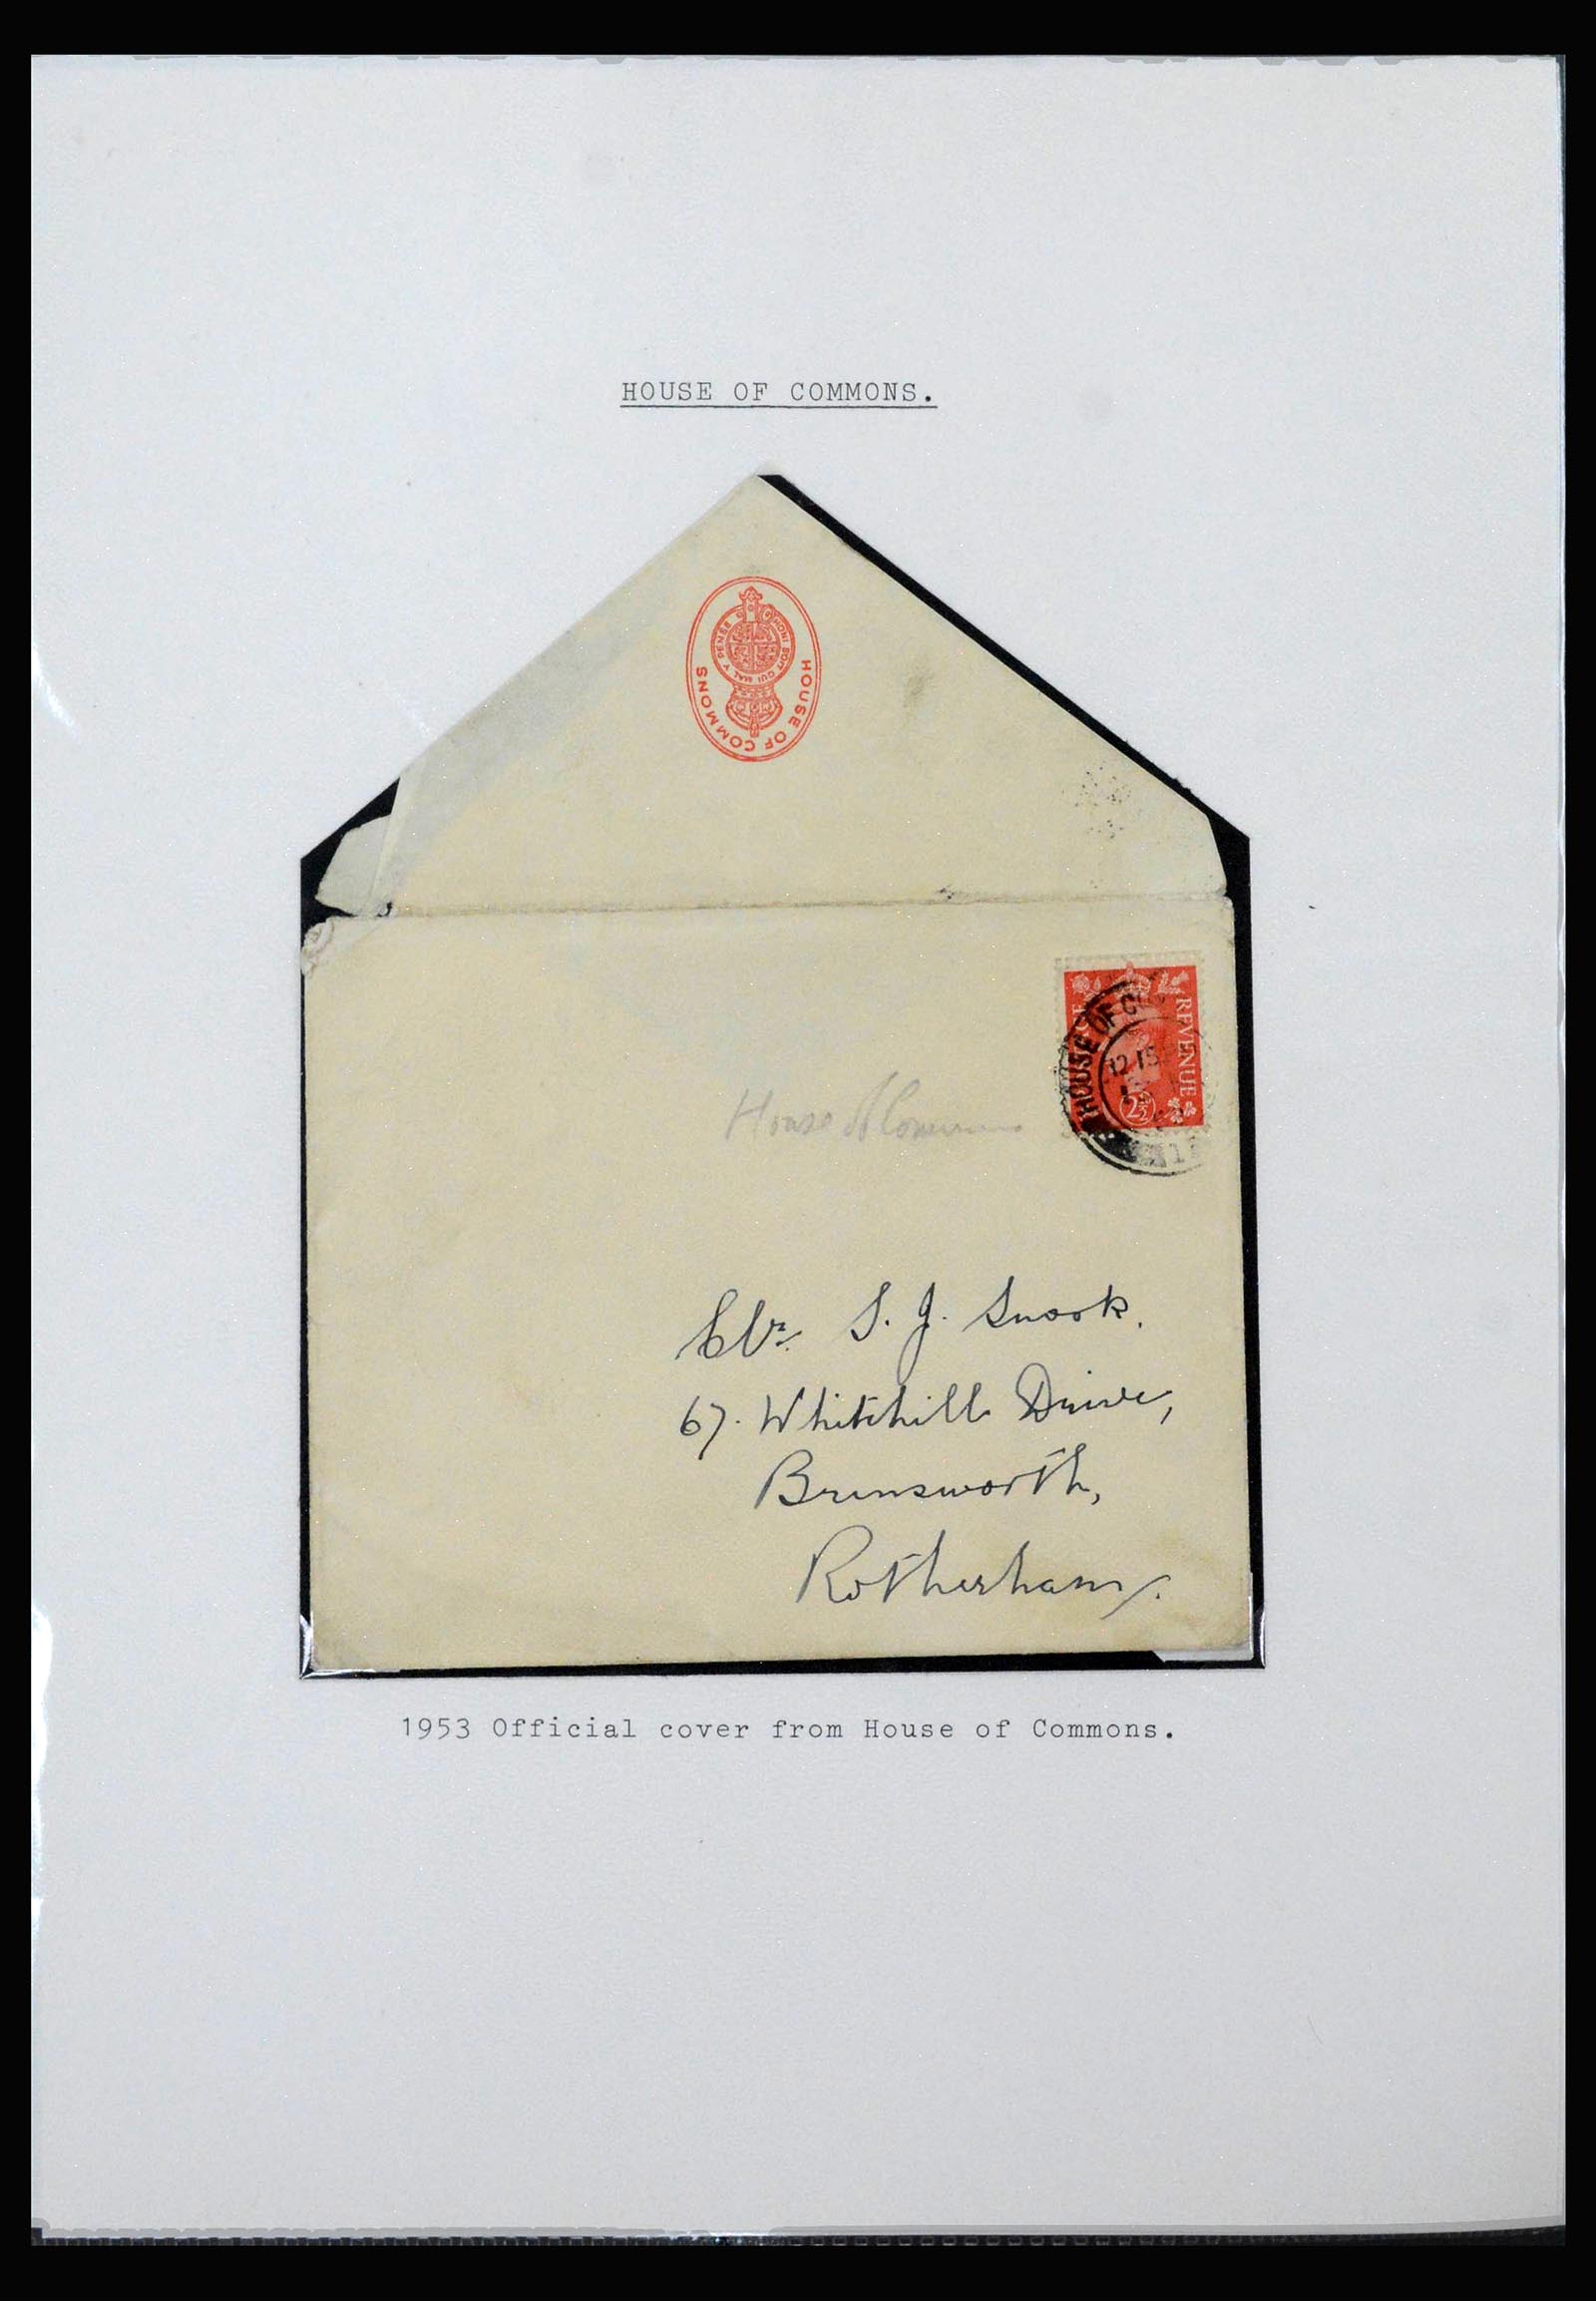 HOUSE OF COMMONS.
HONI SOIT QUI MAL Y PENSE
HOUSE OF COMMONS
REVENUE
2½
HOUSE OF
12 15
House of Commons
Clr. S. J. Snook.
67. Whitehill Drive,
Brinsworth,
Rotherham.
1953 Official cover from House of Commons.